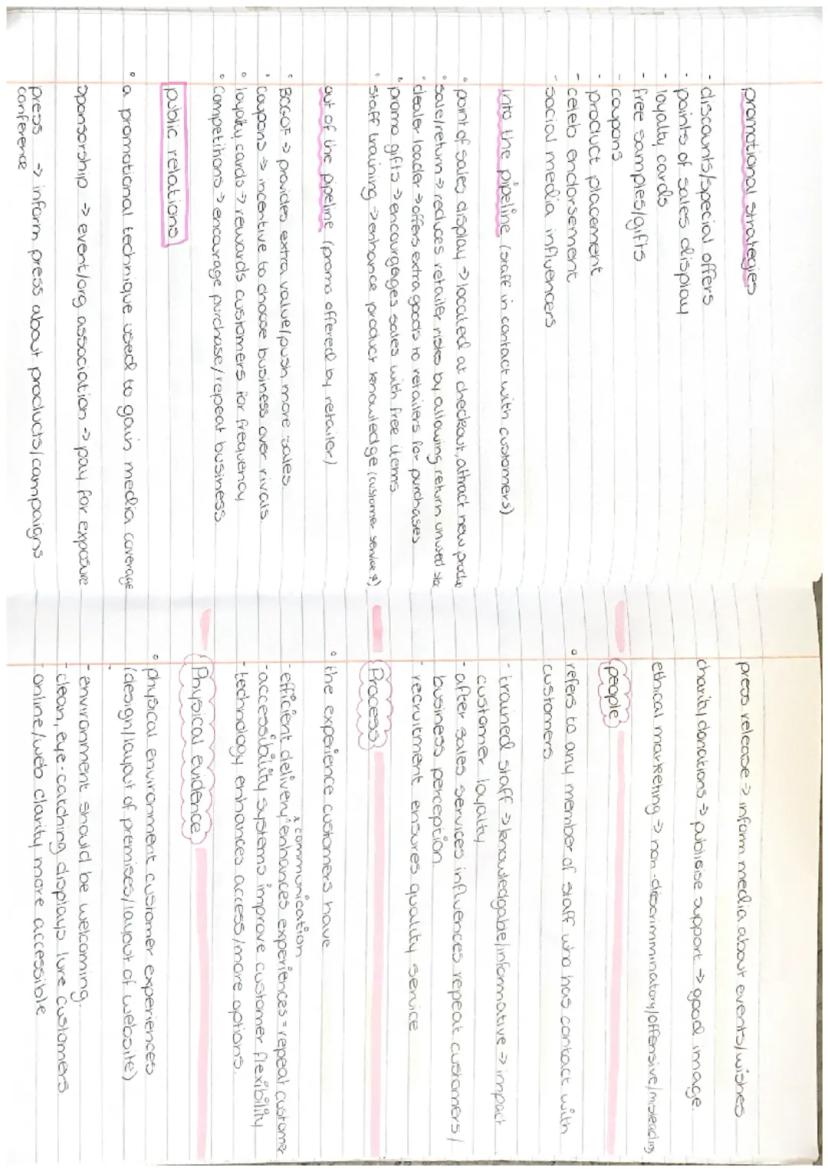 promotional strategies
- discounts/special offers
- points of sales display
- loyalty cards
- free samples/gifts
- coupons
- product placement
- celeb endorsement
- social media influencers
into the pipeline (staff in contact with customers)
° point of sales display → located at checkout, attract new
° sale/return → reduces retailer risks by allowing return unused
° dealer loader → offers extra goods to retailers for purchases
° promo gifts → encourgages sales with free items
° staff training → enhance product knowledge (customer service
out of the pipeline (promo offered by retailer)
° BOGOF → provides extra value/push more sales
° Coupons → incentive to choose business over rivals
° loyalty cards → rewards customers for frequency
° Competitions → encourage purchase/repeat business
public relations
° a promotional technique used to gain media coverage
sponsorship → event/org association → pay for exposure
press → inform press about products/campaigns
conference
press release → inform media about events/wishes
charity donations → publisise support → good image
ethical marketing → non-discrimminatory/offensive/misleading
people
° refers to any member of staff who has contact with
customers
- trained staff → knowledgable/informative → impact
customer loyalty
- after sales services influences repeat customers/
business perception
- recruitment ensures quality service
Process
° the experience customers have
& communication
- efficient delivery^enhances experiences = repeat customer
- accessibility systems improve customer flexibility
- technology enhances access/more options
Physical evidence
° physical environment customer experiences
(design/layout of premises/layout of website)
- environment should be welcoming
- clean, eye-catching displays lure customers
- online/web clarity more accessible